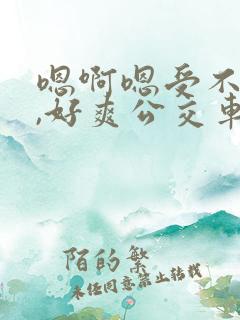 嗯啊嗯受不
,好爽公交车
陌的繁
未经同意禁止转载